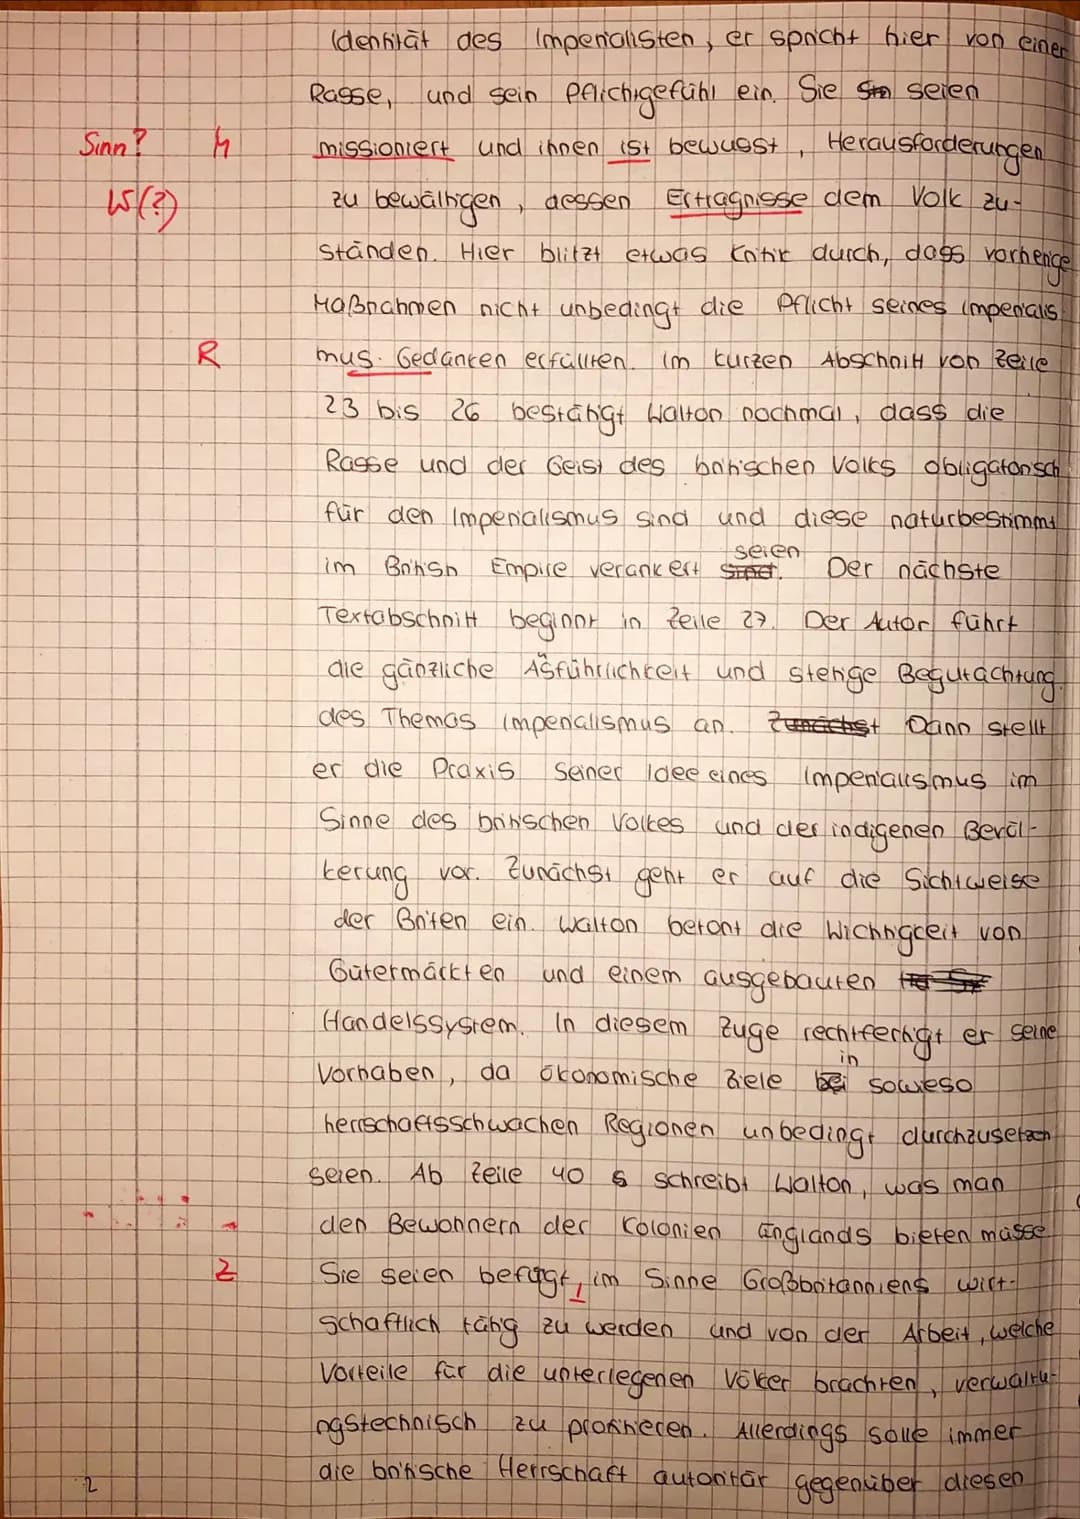 Identität des Imperialisten, er spricht hier von einer
Rasse, und sein Pflichtgefühl ein. Sie seien
Sinn? M missioniert und ihnen ist bewusst, Herausforderungen
W(?) zu bewältigen, dessen Erträgnisse dem Volk zu-
ständen. Hier blitzt etwas Kritik durch, dass vorherige
Maßnahmen nicht unbedingt die Pflicht seines Imperialis
R mus-Gedanken erfüllten. Im kurzen Abschnitt von Zeile
23 bis 26 bestätigt Walton nochmal, dass die
Rasse und der Geist des britischen Volks obligatorisch
für den Imperialismus sind und diese naturbestimmt
im British Empire verankert seien. Der nächste
Textabschnitt beginnt in Zeile 27. Der Autor führt
die gänzliche Ausführlichkeit und stetige Begutachtung
des Themas Imperialismus an. Zunächst Dann stellt
er die Praxis seiner Idee eines Imperialismus im
Sinne des britischen Volkes und der indigenen Bevöl-
kerung vor. Zunächst geht er auf die Sichtweise
der Briten ein. Walton betont die Wichtigkeit von
Gütermärkten und einem ausgebauten
Handelssystem. In diesem Zuge rechtfertigt er seine
Vorhaben, da ökonomische Ziele in sowieso
herrschaftsschwachen Regionen unbedingt durchzusetzen
seien. Ab Zeile 40 schreibt Walton, was man
den Bewohnern der Kolonien Englands bieten müsse.
Z Sie seien befugt, im Sinne Großbritanniens wirt-
schaftlich tätig zu werden und von der Arbeit, welche
Vorteile für die unterlegenen Völker brachten, verwaltu-
ngstechnisch zu profitieren. Allerdings solle immer
die britische Herrschaft autoritär gegenüber diesen
2